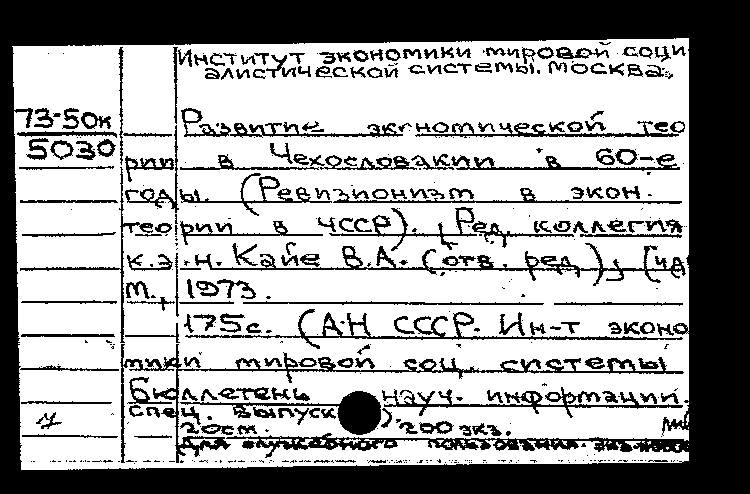 Институт экономики мировой соци-
алистической системы. Москва.
73-50к
5030
Развитие экономической тео
рии в Чехословакии в 60-е
годы. (Ревизионизм в экон.
теории в ЧССР). [Ред. коллегия
к.э.н. Кайе В.А. (отв. ред.) и
М., 1973.
175с. (АН СССР. Ин-т эконо
мики мировой соц. системы
Бюллетень науч. информации.
Спец. выпуск), 200 экз.
20см.
Для служебного пользования.